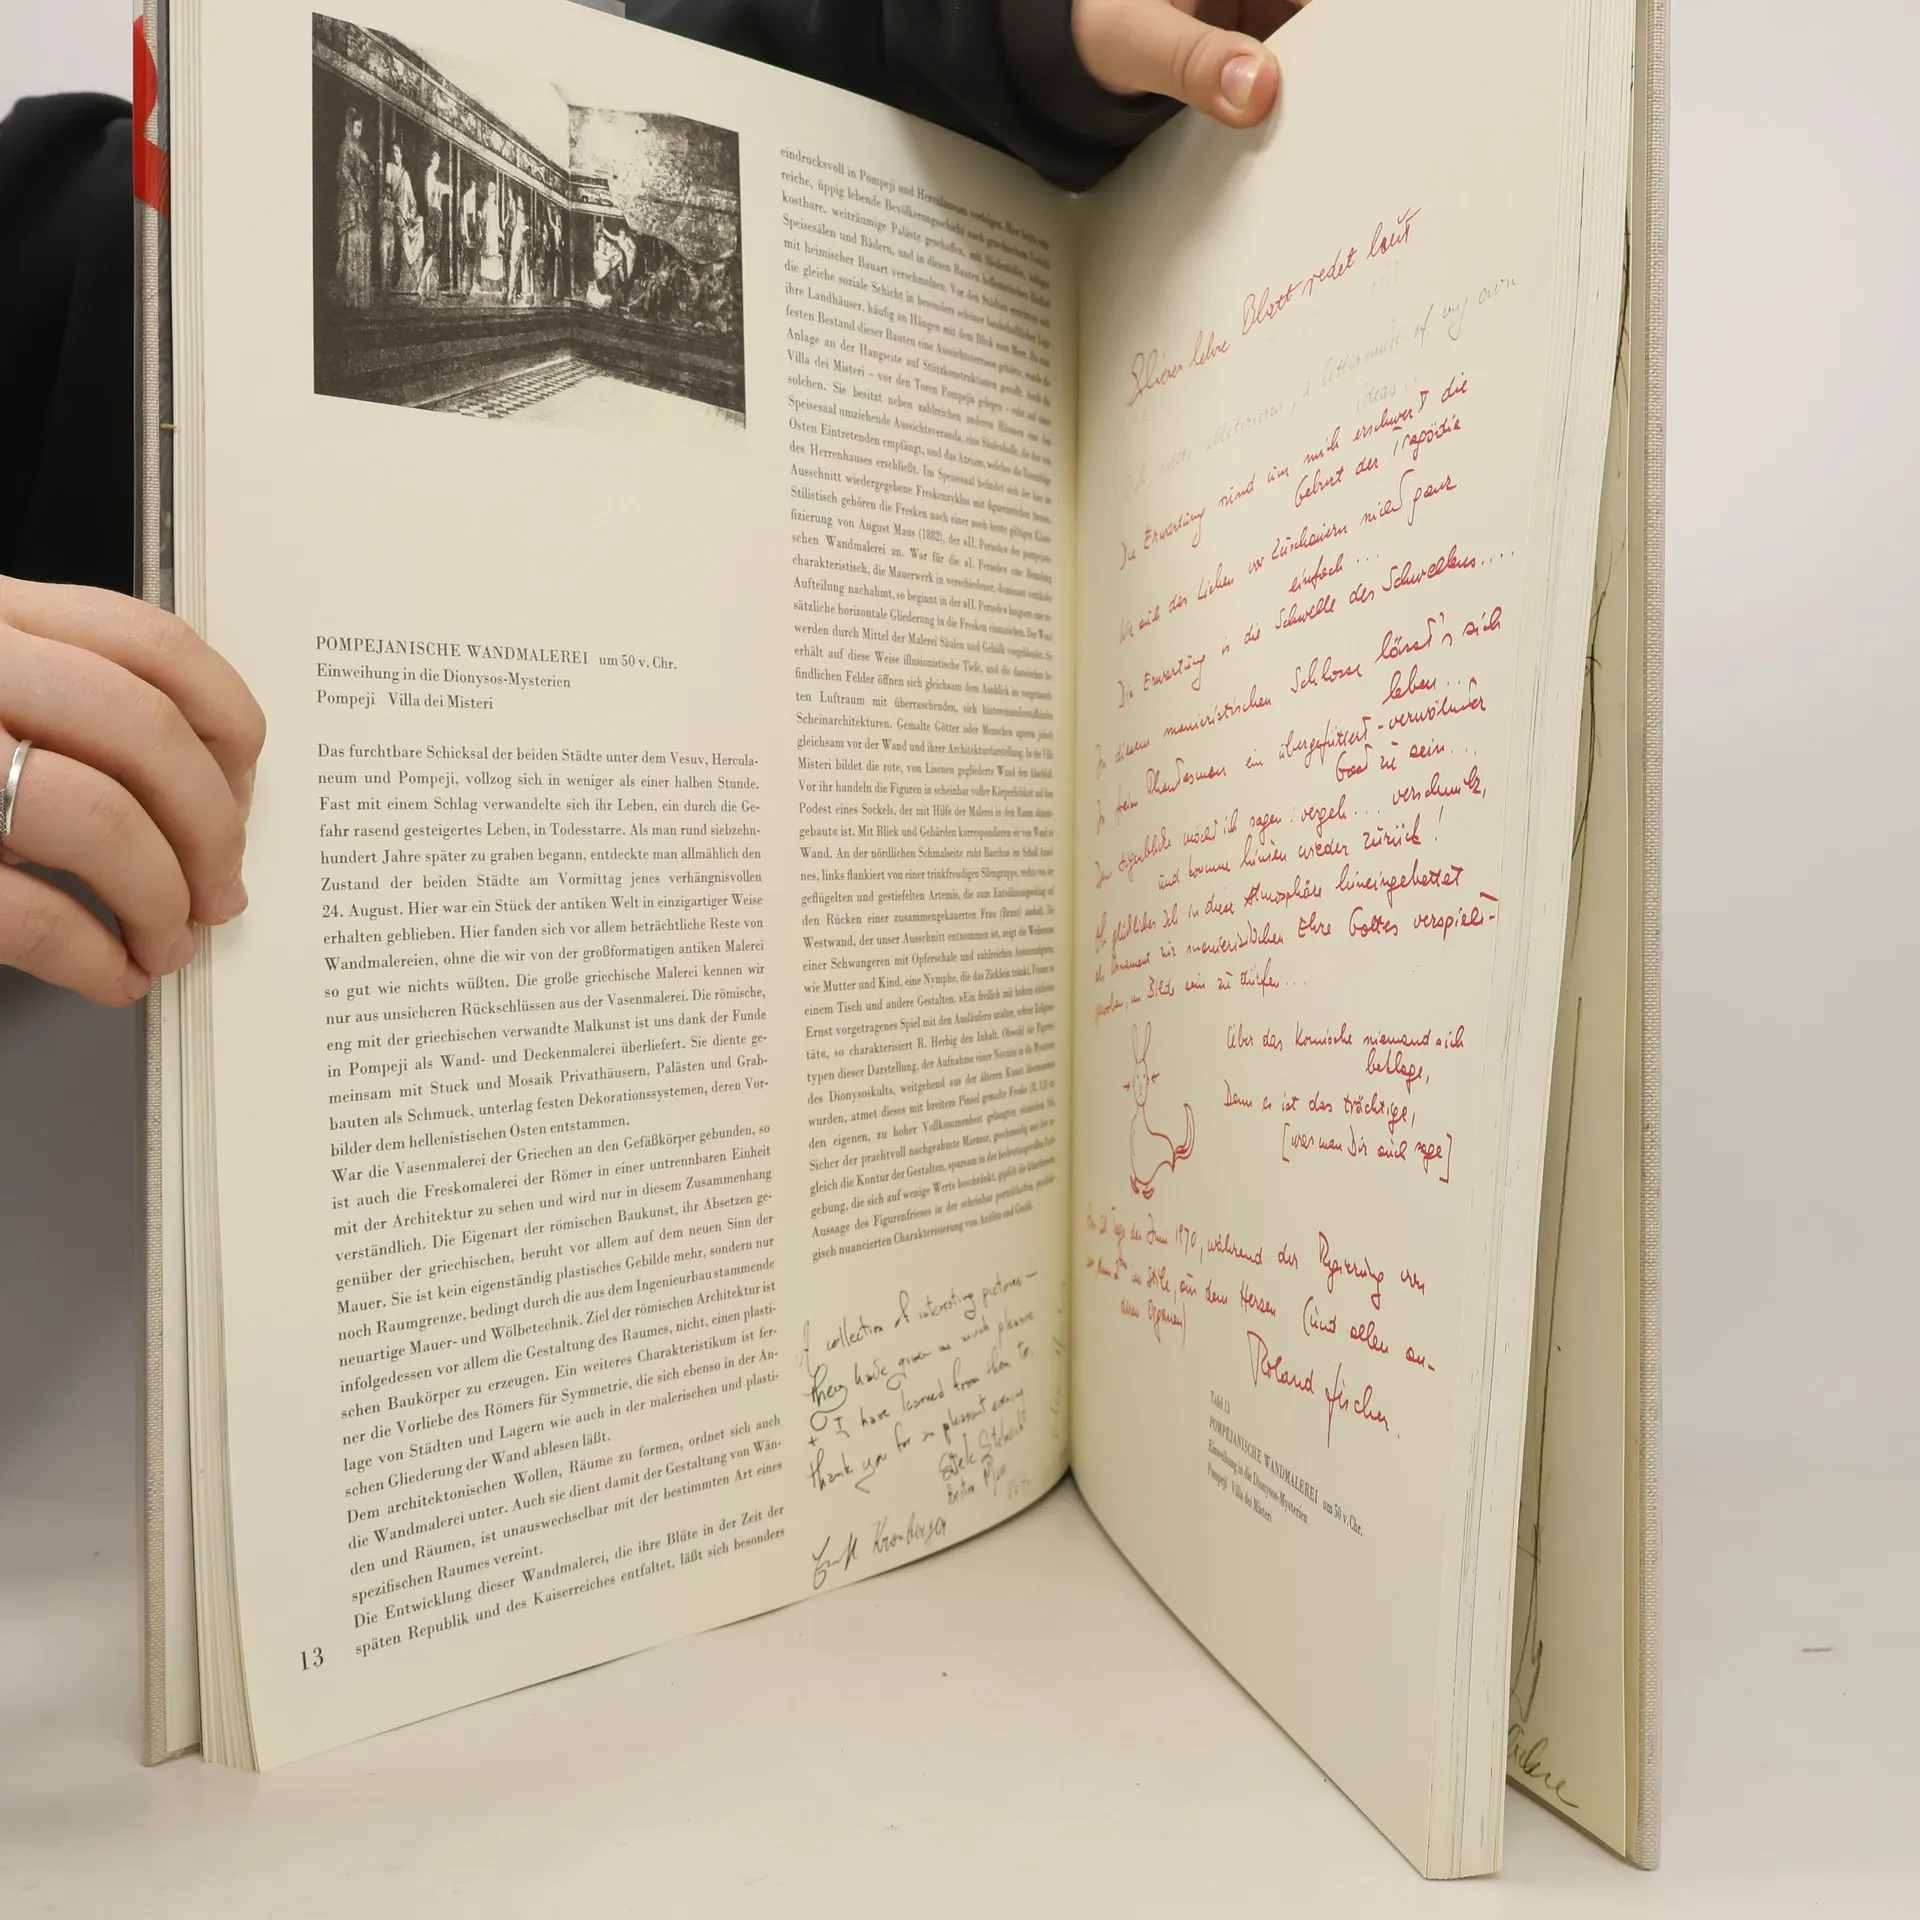 POMPEJANISCHE WANDMALEREI um 50 v. Chr.
Einweihung in die Dionysos-Mysterien
Pompeji Villa dei Misteri
Das furchtbare Schicksal der beiden Städte unter dem Vesuv, Hercula-
neum und Pompeji, vollzog sich in weniger als einer halben Stunde.
Fast mit einem Schlag verwandelte sich ihr Leben, ein durch die Ge-
fahr rasend gesteigertes Leben, in Todesstarre. Als man rund siebzehn-
hundert Jahre später zu graben begann, entdeckte man allmählich den
Zustand der beiden Städte am Vormittag jenes verhängnisvollen
24. August. Hier war ein Stück der antiken Welt in einzigartiger Weise
erhalten geblieben. Hier fanden sich vor allem beträchtliche Reste von
Wandmalereien, ohne die wir von der großformatigen antiken Malerei
so gut wie nichts wüßten. Die große griechische Malerei kennen wir
nur aus unsicheren Rückschlüssen aus der Vasenmalerei. Die römische,
eng mit der griechischen verwandte Malkunst ist uns dank der Funde
in Pompeji als Wand- und Deckenmalerei überliefert. Sie diente ge-
meinsam mit Stuck und Mosaik Privathäusern, Palästen und Grab-
bauten als Schmuck, unterlag festen Dekorationssystemen, deren Vor-
bilder dem hellenistischen Osten entstammen.
War die Vasenmalerei der Griechen an den Gefäßkörper gebunden, so
ist auch die Freskomalerei der Römer in einer untrennbaren Einheit
mit der Architektur zu sehen und wird nur in diesem Zusammenhang
verständlich. Die Eigenart der römischen Baukunst, ihr Absetzen ge-
genüber der griechischen, beruht vor allem auf dem neuen Sinn der
Mauer. Sie ist kein eigenständig plastisches Gebilde mehr, sondern nur
noch Raumgrenze, bedingt durch die aus dem Ingenieurbau stammende
neuartige Mauer- und Wölbetechnik. Ziel der römischen Architektur ist
infolgedessen vor allem die Gestaltung des Raumes, nicht, einen plasti-
schen Baukörper zu erzeugen. Ein weiteres Charakteristikum ist fer-
ner die Vorliebe des Römers für Symmetrie, die sich ebenso in der An-
lage von Städten und Lagern wie auch in der malerischen und plasti-
schen Gliederung der Wand ablesen läßt.
Dem architektonischen Wollen, Räume zu formen, ordnet sich auch
die Wandmalerei unter. Auch sie dient damit der Gestaltung von Wän-
den und Räumen, ist unauswechselbar mit der bestimmten Art eines
spezifischen Raumes vereint.
Die Entwicklung dieser Wandmalerei, die ihre Blüte in der Zeit der
späten Republik und des Kaiserreiches entfaltet, läßt sich besonders
13
eindrucksvoll in Pompeji und Herculaneum verfolgen. Hier hatte eine
reiche, üppig lebende Bevölkerungsschicht nach griechischem Vorbild
kostbare, weiträumige Paläste geschaffen, mit Säulenhöfen,
Speisesälen und Bädern, und in diesen Bauten hellenistischen Einfluß
mit heimischer Bauart verschmolzen. Vor den Städten errichtete sich
die gleiche soziale Schicht in besonders schöner landschaftlicher Lage
ihre Landhäuser, häufig an Hängen mit dem Blick zum Meer. Da zum
festen Bestand dieser Bauten eine Aussichtsterrasse gehörte, wurde die
Anlage an der Hangseite auf Stützkonstruktionen gestellt. Auch die
Villa dei Misteri – vor den Toren Pompejis gelegen – ruht auf einer
solchen. Sie besitzt neben zahlreichen anderen Räumen eine den
Speisesaal umziehende Aussichtsveranda, eine Säulenhalle, die den von
Osten Eintretenden empfängt, und das Atrium, welches die Raumfolge
des Herrenhauses erschließt. Im Speisesaal befindet sich der hier im
Ausschnitt wiedergegebene Freskenzyklus mit figurenreichen Szenen.
Stilistisch gehören die Fresken nach einer noch heute gültigen Klassi-
fizierung von August Maus (1882), der »II. Periode« der pompejani-
schen Wandmalerei an. War für die »I. Periode« eine Bemalung
charakteristisch, die Mauerwerk in verschiedener, dominant vertikaler
Aufteilung nachahmt, so beginnt in der »II. Periode« langsam eine zu-
sätzliche horizontale Gliederung in die Fresken einzuziehen. Der Wand
werden durch Mittel der Malerei Säulen und Gebälk vorgeblendet. Sie
erhält auf diese Weise illusionistische Tiefe, und die dazwischen be-
findlichen Felder öffnen sich gleichsam dem Ausblick im vorgetäusch-
ten Luftraum mit überraschenden, sich hintereinanderstaffelnden
Scheinarchitekturen. Gemalte Götter oder Menschen agieren jedoch
gleichsam vor der Wand und ihrer Architekturdarstellung. In der Villa
Misteri bildet die rote, von Lisenen gegliederte Wand den Abschluß.
Vor ihr handeln die Figuren in scheinbar voller Körperlichkeit auf dem
Podest eines Sockels, der mit Hilfe der Malerei in den Raum »hinein-
gebaut« ist. Mit Blick und Gebärden korrespondieren sie von Wand zu
Wand. An der nördlichen Schmalseite ruht Bacchus im Schoß Ariad-
nes, links flankiert von einer trinkfreudigen Silengruppe, rechts von der
geflügelten und gestiefelten Artemis, die zum Entsühnungsschlag auf
den Rücken einer zusammengekauerten Frau (Braut) ausholt. Die
Westwand, der unser Ausschnitt entnommen ist, zeigt die Weihszene
einer Schwangeren mit Opferschale und zahlreichen Assistenzfiguren,
wie Mutter und Kind, eine Nymphe, die das Zicklein tränkt, Frauen an
einem Tisch und andere Gestalten. »Ein freilich mit hohem sittlichen
Ernst vorgetragenes Spiel mit den Ausläufern uralter, echter Religio-
sität«, so charakterisiert R. Herbig den Inhalt. Obwohl die Figuren-
typen dieser Darstellung, der Aufnahme einer Novizin in die Mysterien
des Dionysoskults, weitgehend aus der älteren Kunst übernommen
wurden, atmet dieses mit breitem Pinsel gemalte Fresko
den eigenen, zu hoher Vollkommenheit gelangten römischen Stil.
Sicher der prachtvoll nachgeahmte Marmor, geschmeidig und fest zu-
gleich die Kontur der Gestalten, sparsam in der bedeutungsvollen Farb-
gebung, die sich auf wenige Werte beschränkt, gipfelt die künstlerische
Aussage des Figurenfrieses in der scheinbar porträthaften,
gisch nuancierten Charakterisierung von Antlitz und Gestik.
collection of interesting pictures –
they have given me much pleasure
+ I have learned from them too.
thank you for a pleasant evening
Kronberger
Blatt redet laut
of my own
ideas..
Die Erwartung rund um mich erschwert die
Geburt der Tragödie
Wie auch das Lieben vor Zuschauern nicht ganz
einfach...
Die Erwartung is die Schwelle des Schwellens....
In diesem manieristischen Schlosse lässt's sich
leben...
In freien Phantasmen ein überfüttert-verwöhnter
Gast zu sein...
Dem Augenblicke möcht ich sagen: vergeh... verschmitz,
und komme hinten wieder zurück!
Oh glückliches Ich in diese Atmosphäre hineingebettet
als Ornament zur manieristischen Ehre Gottes verspielt-
gewoben, im Bilde sein zu dürfen...
Über das Komische niemand sich
beklage,
Denn es ist das trächtige,
[was man Dir auch sage]
Juni 1970, während der Regierung von
im Stile, aus dem Herzen (und allen an-
deren Organen)
Roland Fischer.
Tafel 13
POMPEJANISCHE WANDMALEREI um 50 v. Chr.
Einweihung in die Dionysos-Mysterien
Pompeji Villa dei Misteri